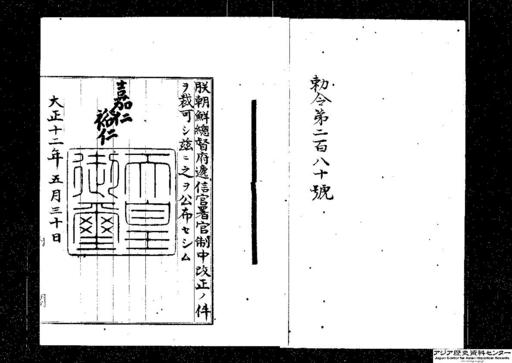 勅令第二百八十號
朕朝鮮總督府遞信官署官制中改正ノ件
ヲ裁可シ玆ニ之ヲ公布セシム
嘉仁
裕仁
天皇御璽
大正十二年五月三十日
アジア歴史資料センター
Japan Center for Asian Historical Records